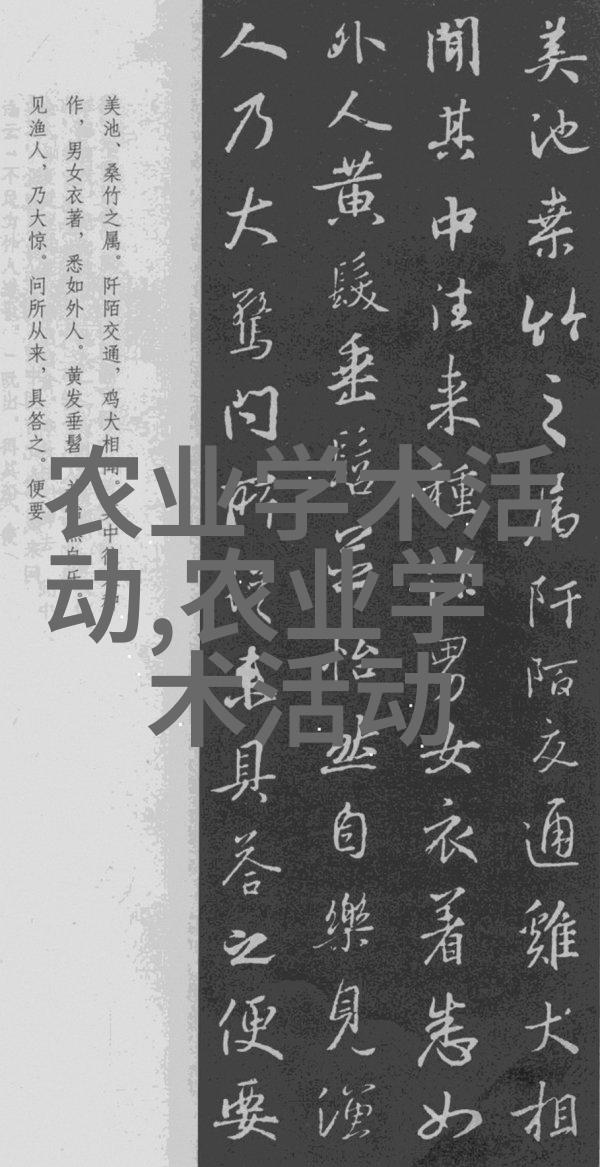 美池桒竹之属阡陌交通雞犬相
聞其中往来種作男女衣着悉如
外人黄髮垂髫並怡然自樂見漁
人乃大驚問所從来具答之便要
美池、桑竹之属。阡陌交通，鸡犬相闻。其中往来种
作，男女衣著，悉如外人。黄发垂髫，并怡然自乐。
见渔人，乃大惊。问所从来，具答之。便要
农业学术活
动,农业学
术活动